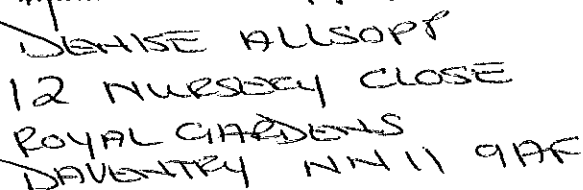 DENISE ALLSOPP
12 NURSERY CLOSE
ROYAL GARDENS
DAVENTRY NN11 9AF